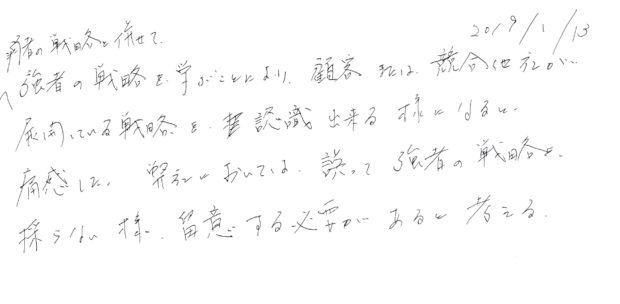 2019/1/13
弱者の戦略と併せて、
強者の戦略を学ぶことにより、顧客または、競合他社が
展開している戦略を、認識出来る様になると
痛感した。弊社においても、誤って強者の戦略を、
採らない様、留意する必要があると考える。